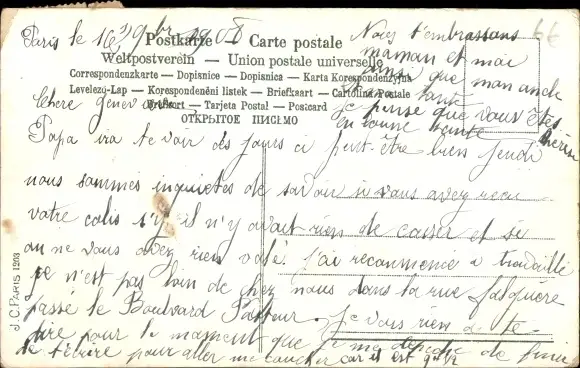 Paris le 16 9bre 1908
Postkarte — Carte postale
Weltpostverein — Union postale universelle
Correspondenzkarte — Dopisnice — Dopisnica — Karta Korespondenzyjna
Levelezö-Lap — Korespondenèni listek — Briefkaart — Cartolina Postale
Brefkort — Tarjeta Postal — Postcard
ОТКРЫТОЕ ПИСЬМО
Nous t'embrassons
maman et moi
que mon oncle
tante
je pense que vous êtes
en bonne santé
66
Chere
Papa ira te voir ces jours ci peut-être bien jeudi
nous sommes inquietes de savoir si vous avez recu
votre colis s'il n'y avait rien de casser et si
on ne vous avez rien volé. j'ai recommencé a travaillé
ce n'est pas loin de chez nous dans la rue falguière
passé le Boulvard Pasteur. Je vous rien de te
dire pour le moment que je me dépêche de finir
de t'écrire pour aller me coucher car il est 9h 1/2
J.C. PARIS 1903